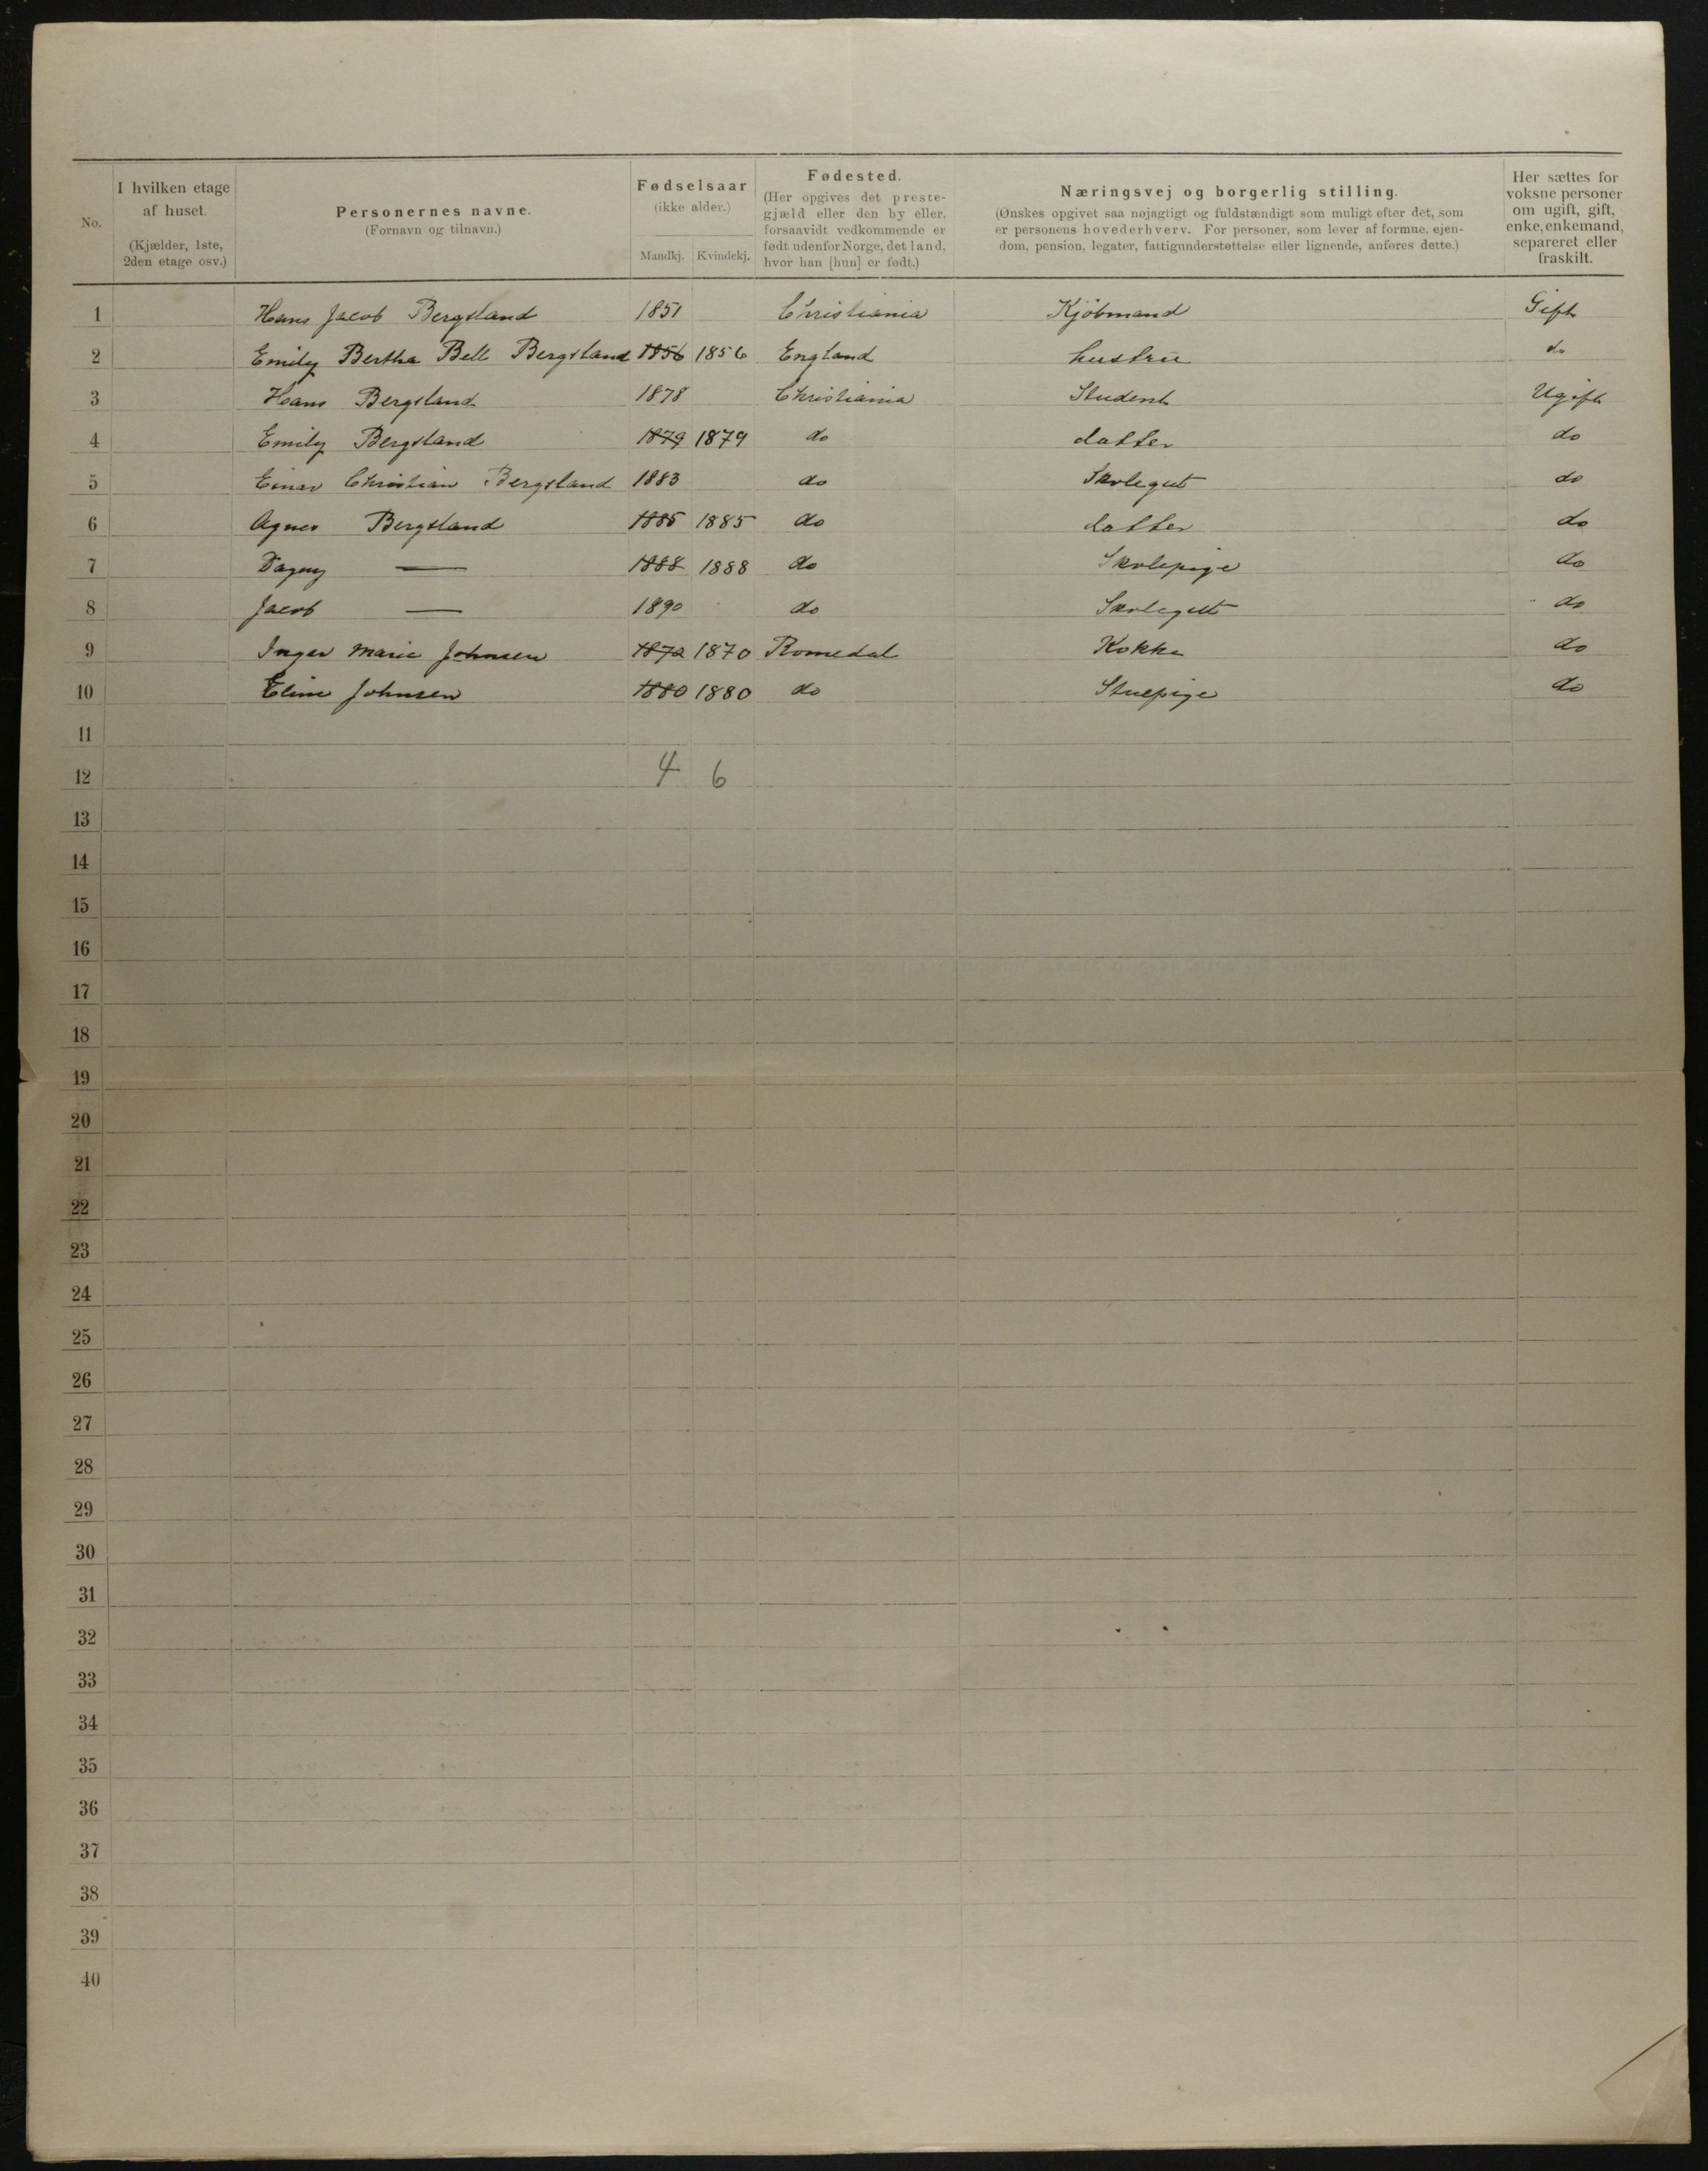 No.
I hvilken etage af huset. (Kjælder, 1ste, 2den etage osv.)
Personernes navne. (Fornavn og tilnavn.)
Fødselsaar (ikke alder.) Mandkj. Kvindekj.
Fødested. (Her opgives det prestegjæld eller den by eller, forsaavidt vedkommende er født udenfor Norge, det land, hvor han [hun] er født.)
Næringsvej og borgerlig stilling.
(Ønskes opgivet saa nøjagtigt og fuldstændigt som muligt efter det, som
er personens hovederhverv. For personer, som lever af formue, ejen-
dom, pension, legater, fattigunderstøttelse eller lignende, anføres dette.)
Her sættes for voksne personer om ugift, gift, enke, enkemand, separeret eller fraskilt.
1 Hans Jacob Bergsland 1851 Christiania Kjöbmand Gift
2 Emily Bertha Bell Bergsland 1856 1856 England hustru do
3 Hans Bergsland 1878 Christiania Student Ugift
4 Emily Bergsland 1879 1879 do datter do
5 Einar Christian Bergsland 1883 do Skolegut do
6 Agnes Bergsland 1885 1885 do datter do
7 Dagny — 1888 1888 do Skolepige do
8 Jacob — 1890 do Skolegut do
9 Inger Marie Johnsen 1870 Romedal Kokke do
10 Eline Johnsen 1880 1880 do Stuepige do
11
12 4 6
13
14
15
16
17
18
19
20
21
22
23
24
25
26
27
28
29
30
31
32
33
34
35
36
37
38
39
40